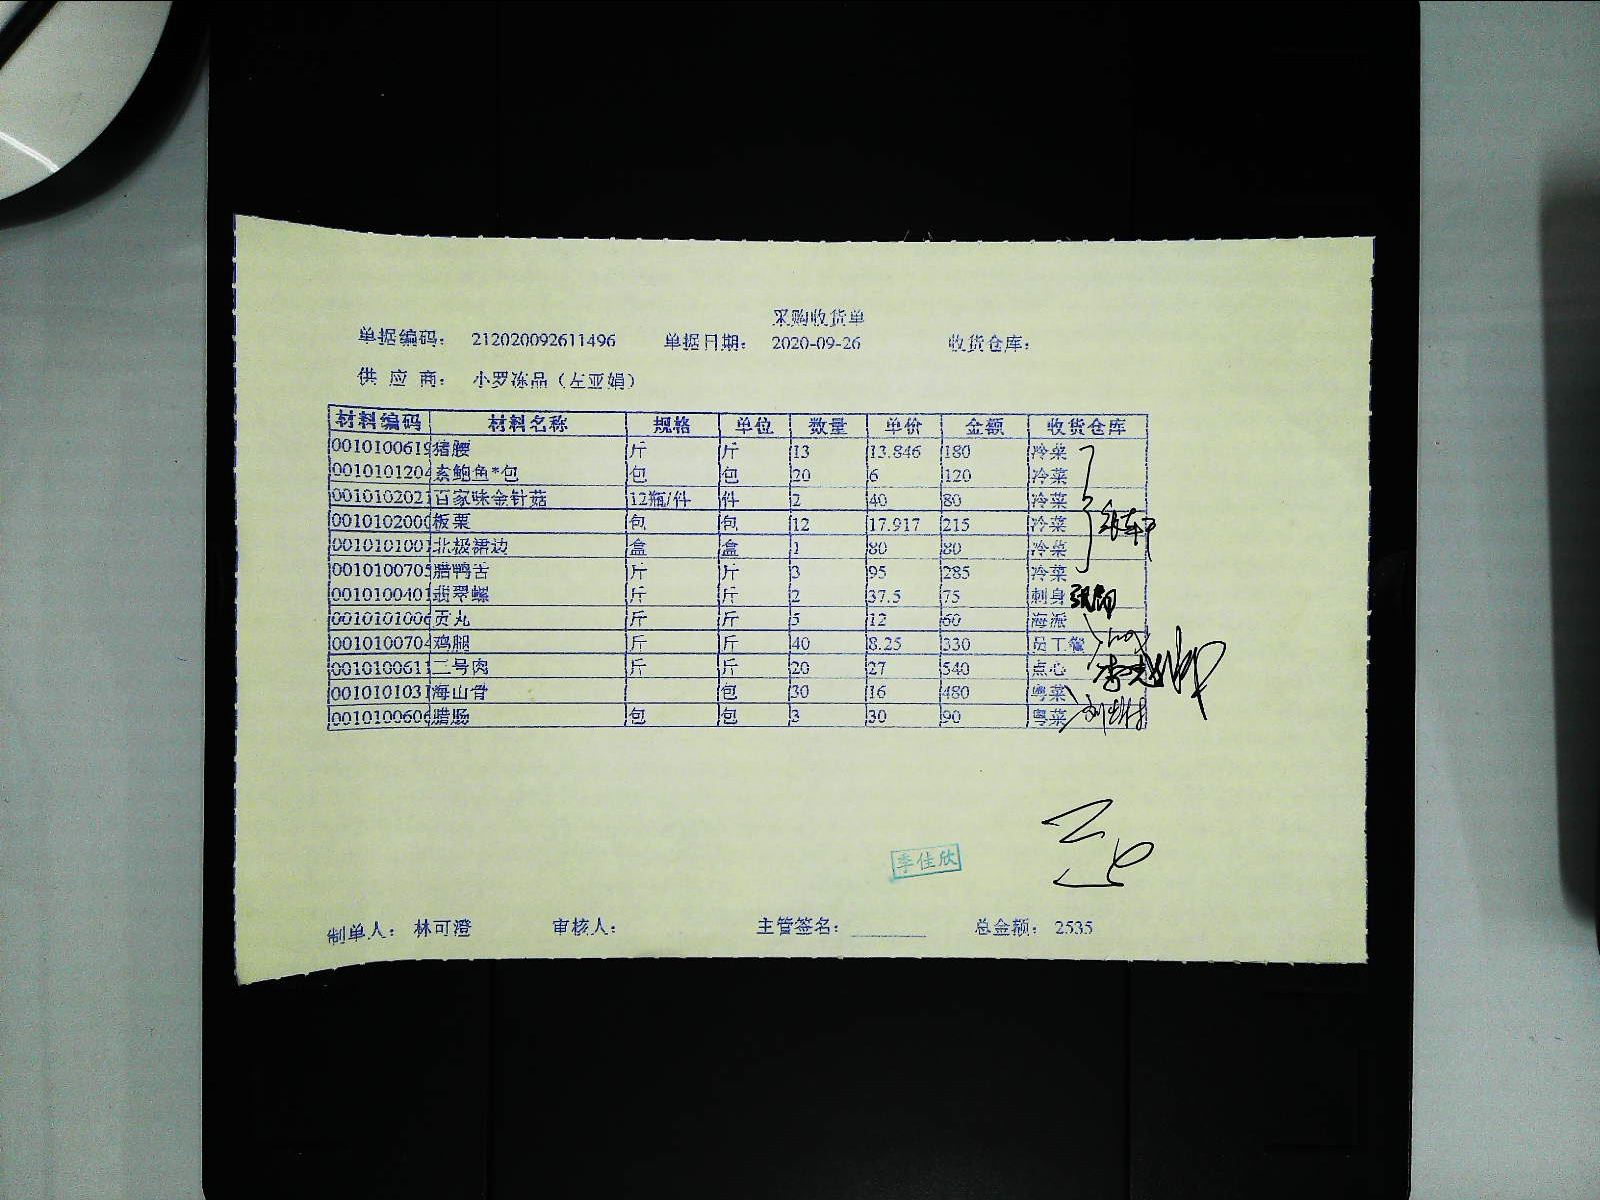 采购收货单
单据编码： 212020092611496 单据日期： 2020-09-26 收货仓库：
供 应 商： 小罗冻品（左亚娟）
材料编码 材料名称 规格 单位 数量 单价 金额 收货仓库
001010061 猪腰 斤 斤 13 13.846 180 冷菜
001010120 素鲍鱼*包 包 包 20 6 120 冷菜
001010202 百家味金针菇 12瓶/件 件 2 40 80 冷菜
001010200 板栗 包 包 12 17.917 215 冷菜
001010100 北极裙边 盒 盒 1 80 80 冷菜
001010070 腊鸭舌 斤 斤 3 95 285 冷菜
001010040 翡翠螺 斤 斤 2 37.5 75 刺身
001010100 贡丸 斤 斤 5 12 60 海派
001010070 鸡腿 斤 斤 40 8.25 330 员工餐
001010061 二号肉 斤 斤 20 27 540 点心
001010103 海山骨 包 30 16 480 粤菜
001010060 腊肠 包 包 3 30 90 粤菜
李佳欣
制单人： 林可澄 审核人： 主管签名： 总金额： 2535